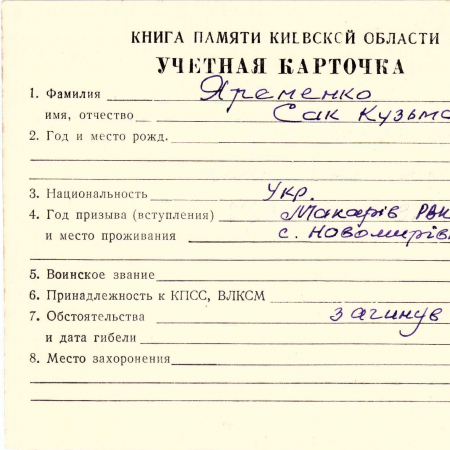 КНИГА ПАМЯТИ КИЕВСКОЙ ОБЛАСТИ
УЧЕТНАЯ КАРТОЧКА
1. Фамилия Яременко
имя, отчество Сак Кузьмо
2. Год и место рожд.
3. Национальность Укр.
4. Год призыва (вступления) Макарів РВК
и место проживания с. Новомирівк
5. Воинское звание
6. Принадлежность к КПСС, ВЛКСМ
7. Обстоятельства загинув
и дата гибели
8. Место захоронения